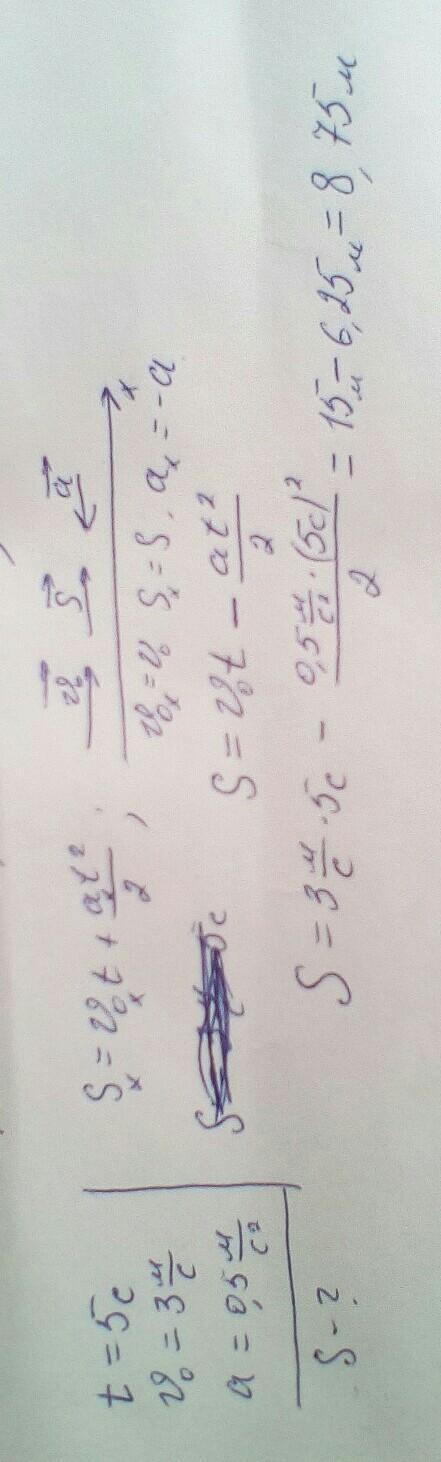 t = 5c
v₀ = 3 м/с
a = 0,5 м/с²
S - ?
Sₓ = v₀ₓt + aₓt²/2 ;
v₀ S a
x
v₀ₓ = v₀ Sₓ = S. aₓ = -a
S 5c
S = v₀t - at²/2
S = 3 м/с · 5c - 0,5 м/с² · (5c)²/2 = 15м - 6,25м = 8,75м